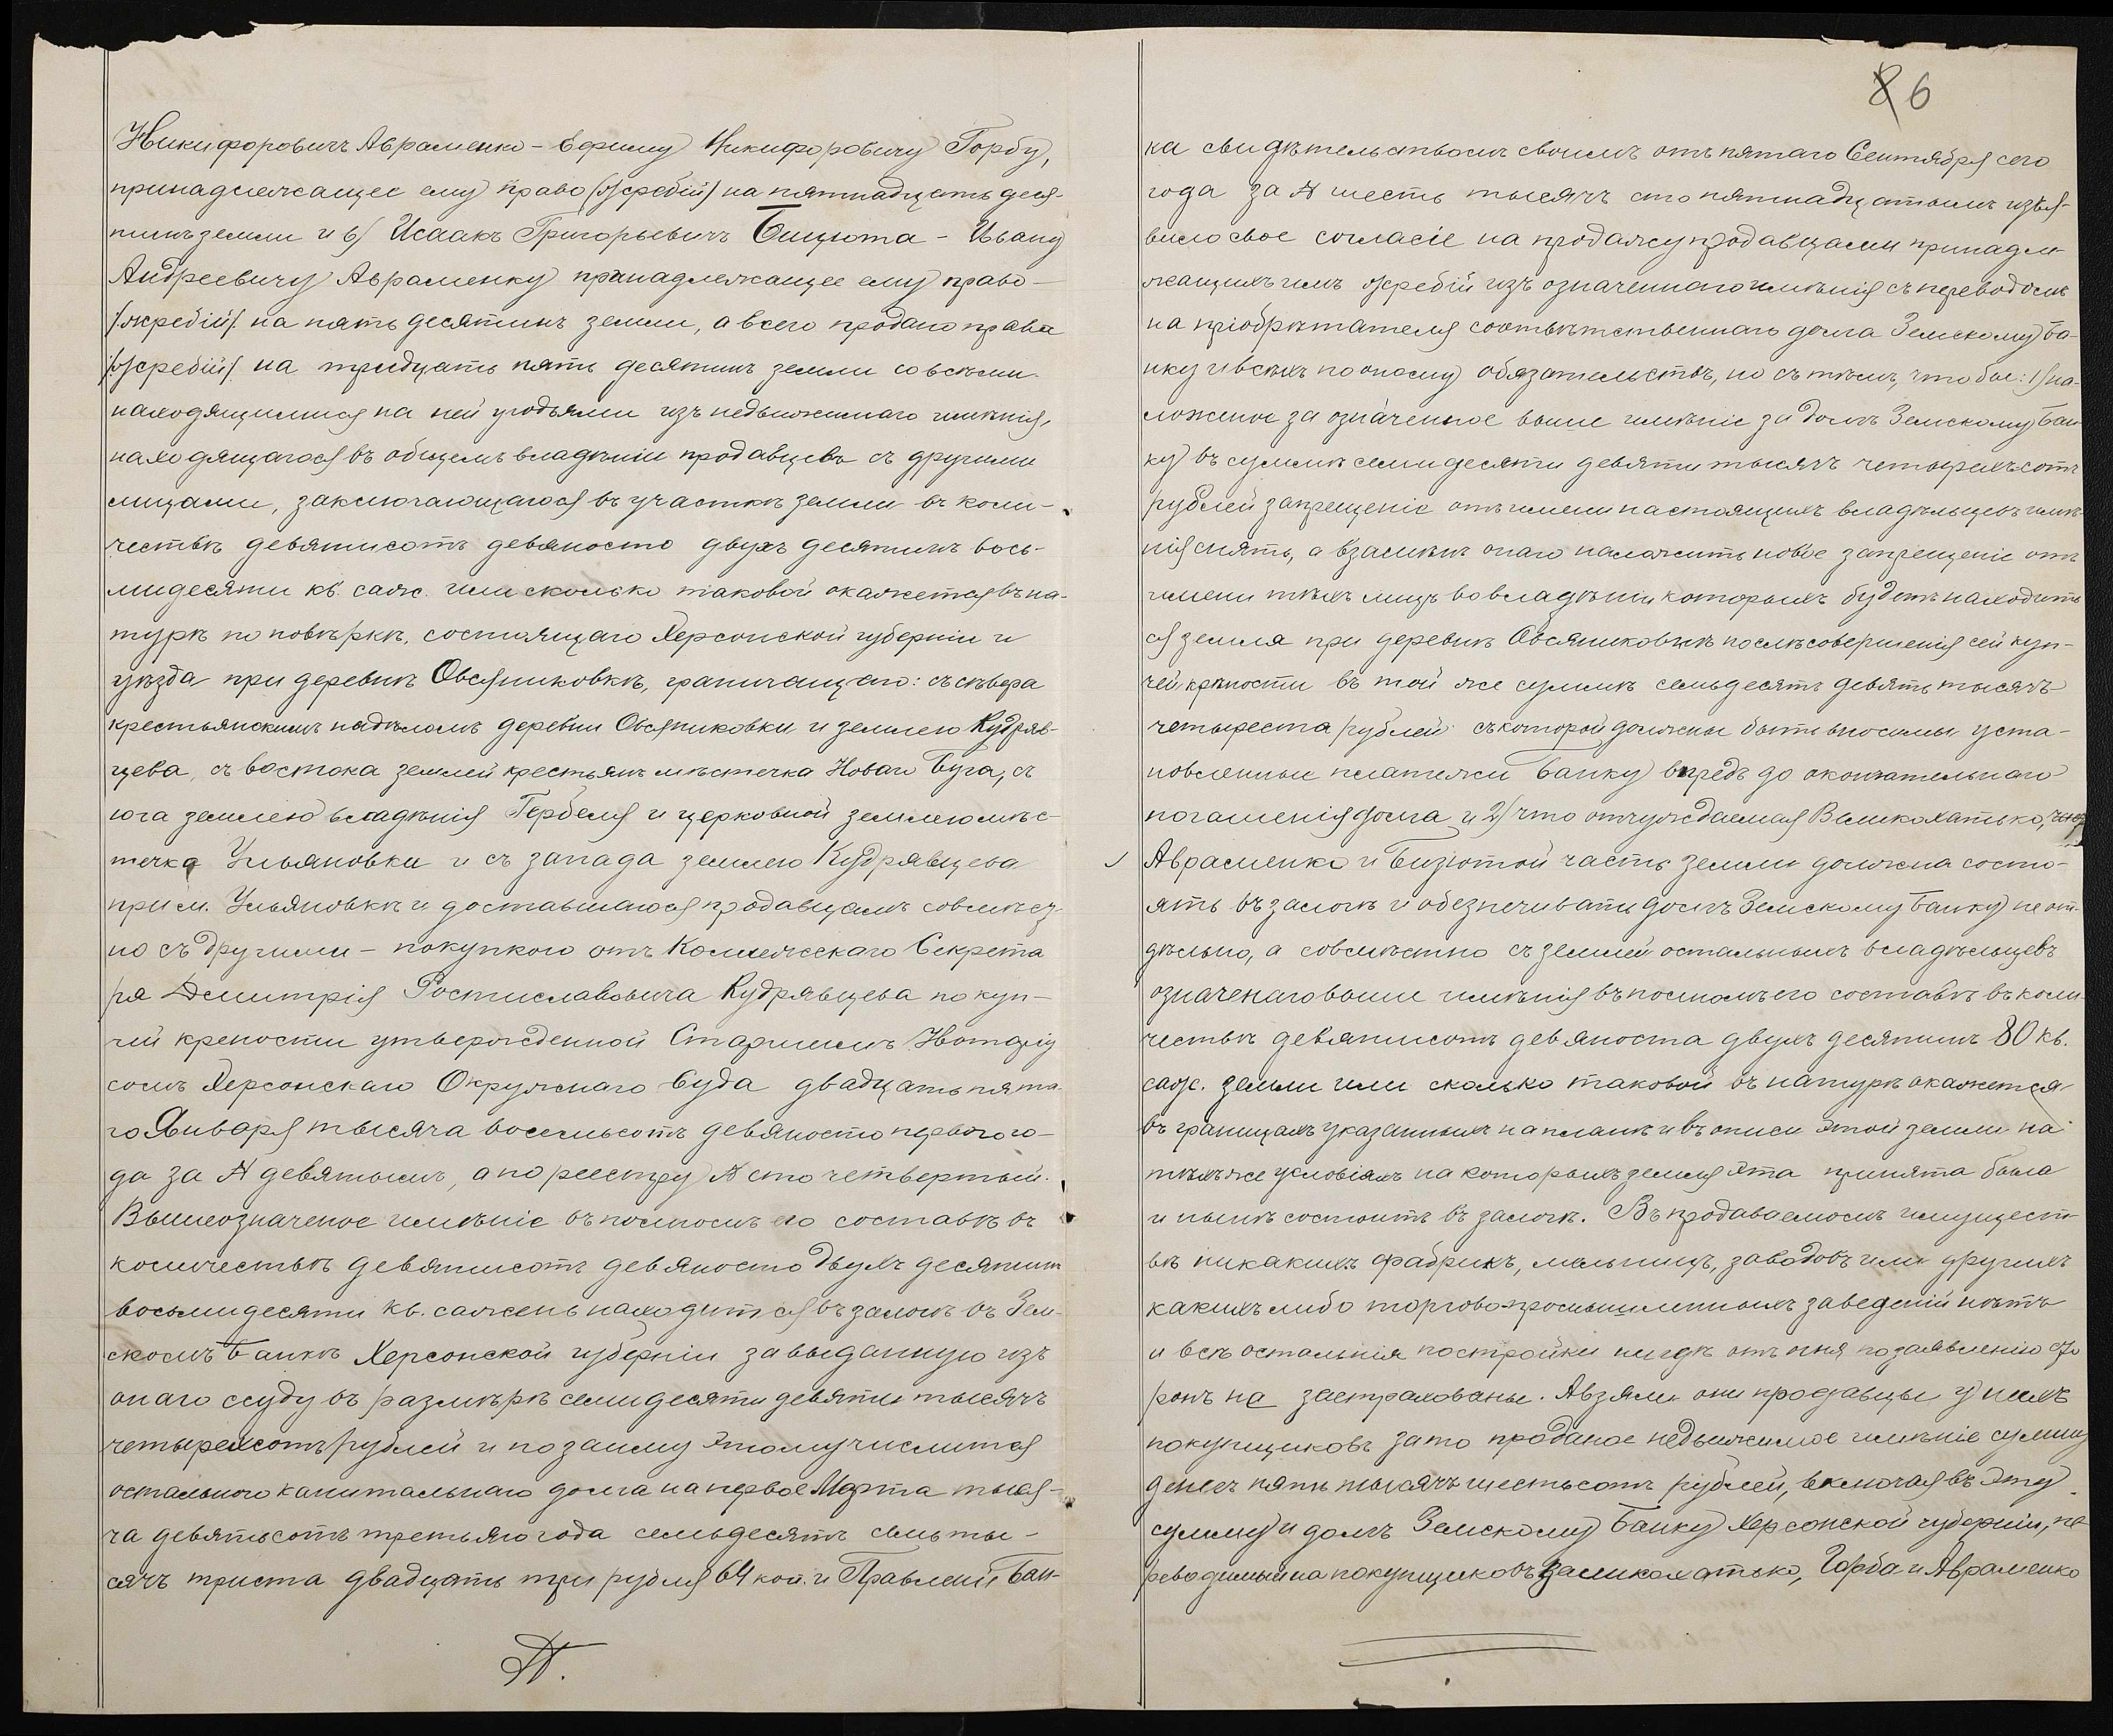 Никифоровичъ Авраменко - Ефиму Никифоровичу Горбу,
принадлежащее ему право (жребій) на пятнадцать деся-
тинъ земли и 6) Исаакъ Григорьевичъ Бицюта - Ивану
Андреевичу Авраменку принадлежащее ему право -
/жребій/ на пять десятинъ земли, а всего продано права
/жребій/ на тридцать пять десятинъ земли со всѣми
находящимися на ней угодьями изъ недвижимаго имѣнія,
находящагося въ общемъ владѣніи продавцевъ съ другими
лицами, заключающагося въ участкѣ земли въ коли-
чествѣ девятисотъ девяносто двухъ десятинъ вось-
мидесяти кв. саж. или сколько таковой окажется въ на-
турѣ по повѣркѣ, состоящаго Херсонской губерніи и
уѣзда при деревнѣ Овсяниковкѣ, граничащаго: съ сѣвера
крестьянскимъ надѣломъ деревни Овсяниковки и землею Кудряв-
цева, съ востока землей крестьянъ мѣстечка Новаго Буга, съ
юга землею владѣнія Гербеля и церковной землею мѣс-
течка Ульяновки и съ запада землею Кудрявцева
при м. Ульяновкѣ и доставшагося продавцамъ совмѣст-
но съ другими - покупкою отъ Коллежскаго Секрета
ря Дмитрія Ростиславовича Кудрявцева по куп-
чей крепости утвержденной Старшимъ Нотаріу
сомъ Херсонскаго Окружнаго Суда двадцать пята-
го Января тысяча восемьсотъ девяносто перваго го-
да за № девятымъ, а по реестру № сто четвертый.
Вышеозначеное имѣніе въ полномъ его составѣ въ
количествѣ девятисотъ девяносто двухъ десятинъ
восьмидесяти кв. сажень находится въ залогѣ въ Зем-
скомъ Банкѣ Херсонской губерніи за выданную изъ
онаго ссуду въ размѣрѣ семидесяти девяти тысячъ
четырехсотъ рублей и по займу этому числится
остального капитальнаго долга на первое Марта тыся-
ча девятьсотъ третьяго года семьдесятъ семь ты-
сячъ триста двадцать три рубля 64 коп. и Правленіе Бан-
86
ка свидѣтельствомъ своимъ отъ пятаго Сентября сего
года за № шесть тысячъ сто пятнадцатымъ изъя-
вило свое согласіе на продажу продавцами принадле-
жащихъ имъ жребій изъ означеннаго имѣнія съ переводомъ
на пріобрѣтателя соотвѣтственнаго долга Земскому Ба-
нку и всѣхъ по оному обязательствъ, но съ тѣмъ, что бы: 1) на-
ложеное за означенное выше имѣніе за долгъ Земскому Бан
ку въ суммѣ семидесяти девяти тысячъ четырехъ сотъ
рублей запрещеніе отъ имени настоящихъ владѣльцевъ имѣ-
нія снять, а взамѣнъ онаго наложить новое запрещеніе отъ
имени тѣхъ лицъ во владѣніи которыхъ будетъ находить
ся земля при деревнѣ Овсяниковкѣ послѣ совершенія сей куп-
чей крѣпости въ той же суммѣ семьдесятъ девять тысячъ
четыреста рублей съ которой должны быть вносимы уста-
новленные платежи Банку впредь до окончательнаго
погашенія долга и 2) что отчуждаемая Великохатько,
Авраменко и Бизютой часть земли должна состо-
ять въ залогѣ и обезпечивать долгъ Земскому Банку не от-
дѣльно, а совмѣстно съ землей остальныхъ владѣльцевъ
означенаго выше имѣнія въ полномъ его составѣ въ коли-
чествѣ девятисотъ девяноста двухъ десятинъ 80 кв.
саж. земли или сколько таковой въ натурѣ окажется
въ границахъ указанныхъ на планѣ и въ описи этой земли на
тѣхъ же условіяхъ на которыхъ земля эта принята была
и нынѣ состоитъ въ залогѣ. Въ продаваемомъ имущест-
вѣ никакихъ фабрикъ, мельницъ, заводовъ или другихъ
какихъ либо торгово-промышленныхъ заведеній нѣтъ
и всѣ остальнія постройки нигдѣ отъ огня по заявленію сто
ронъ не застрахованы. А взяли они продавцы у нихъ
покупщиковъ за то проданое недвижимое имѣніе сумму
денегъ пять тысячъ шестьсотъ рублей, включая въ эту
сумму и долгъ Земскому Банку Херсонской губерніи, пе-
реводимый на покупщиковъ Великохатько, Горба и Авраменко